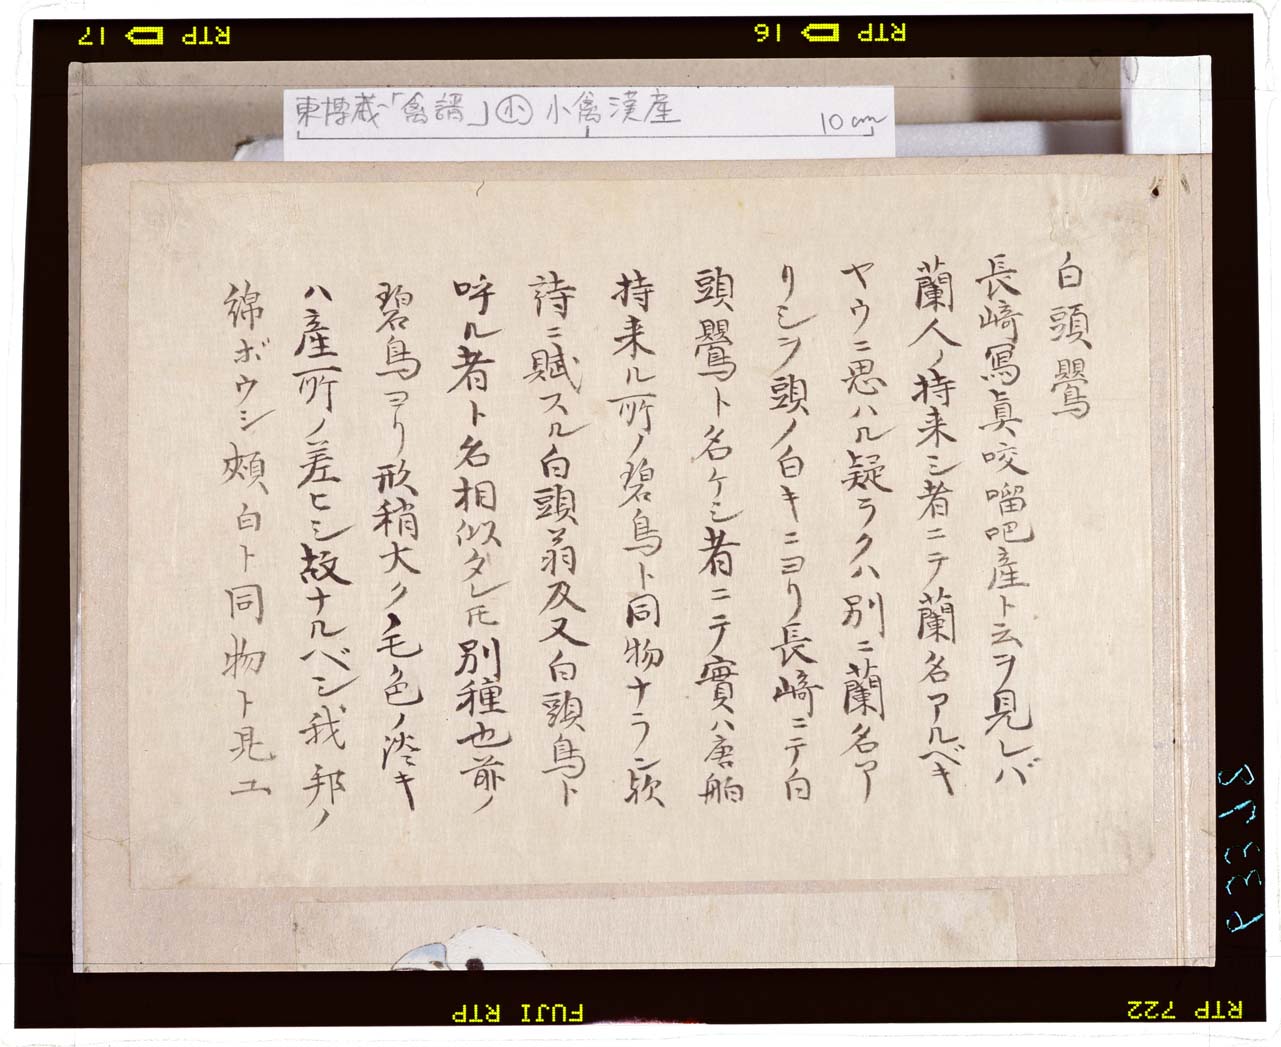 RTP 17
RTP 16
東博蔵「禽譜」㊥ 小禽漢産
10cm
白頭鸎
長﨑寫眞咬𠺕吧産ト云ヲ見レバ
蘭人ノ持来シ者ニテ蘭名アルベキ
ヤウニ思ハル疑ラクハ別ニ蘭名ア
リシヲ頭ノ白キニヨリ長﨑ニテ白
頭鸎ト名ケシ者ニテ實ハ唐舶
持来ル所ノ碧鳥ト同物ナラン欤
詩ニ賦スル白頭翁及又白頭鳥ト
呼ル者ト名相似タレ𪜈別種也前ノ
碧鳥ヨリ形稍大ク毛色ノ淡キ
ハ産所ノ差ヒシ故ナルベシ我邦ノ
綿ボウシ頰白ト同物ト見ユ
FUJI RTP
RTP 722